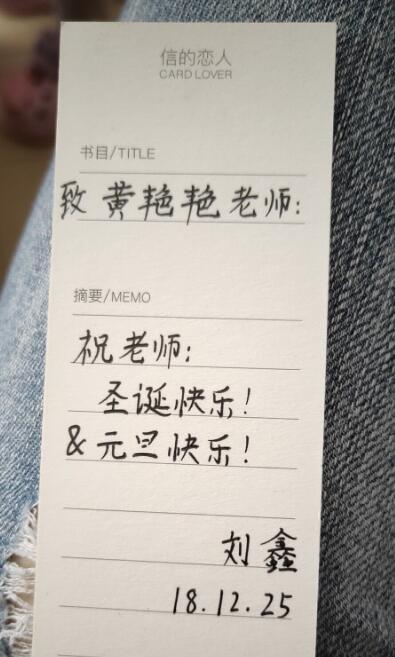 信的恋人
CARD LOVER
书目/TITLE
致黄艳艳老师:
摘要/MEMO
祝老师:
圣诞快乐!
&元旦快乐!
刘鑫
18.12.25